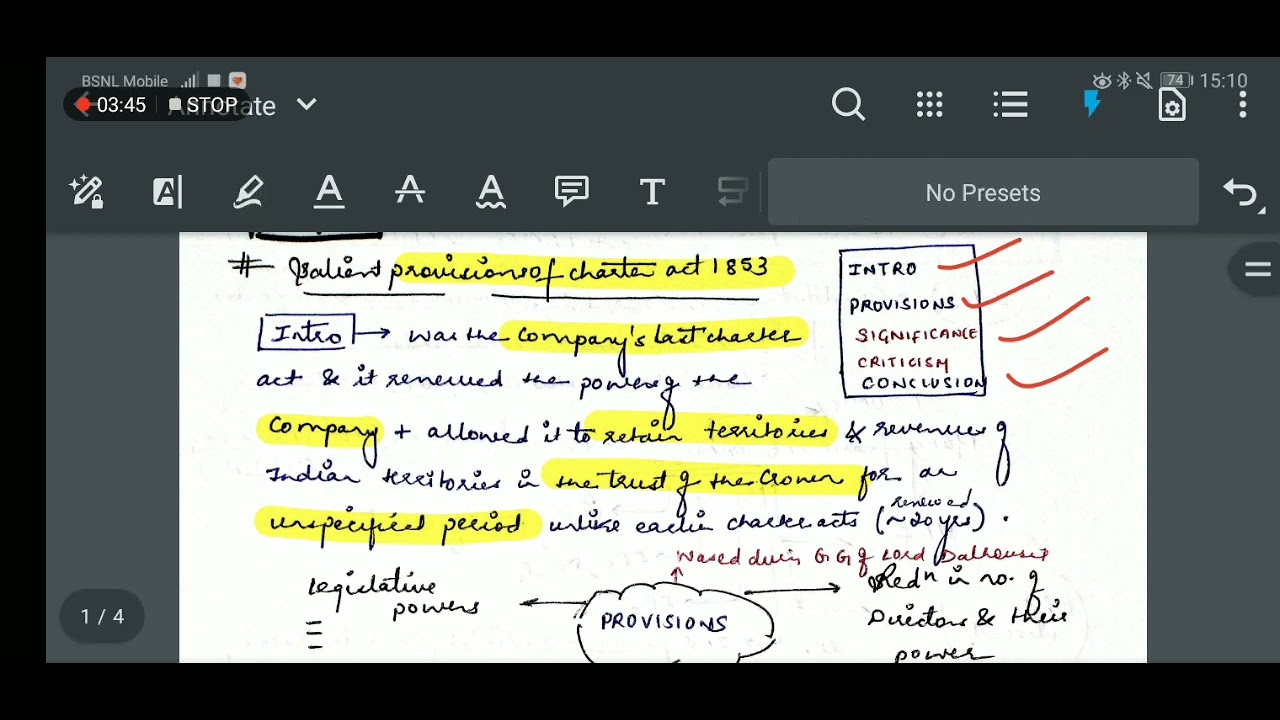 BSNL Mobile 74 15:10
03:45 STOP Annotate
A A A A T No Presets
# Salient provisions of charter act 1853
INTRO
PROVISIONS
SIGNIFICANCE
CRITICISM
CONCLUSION
Intro → was the Company's last charter
act & it renewed the power of the
Company + allowed it to retain territories & revenues of
Indian territories in the trust of the Crown for an
unspecified period unlike earlier charter acts (renewed ~20 yrs).
during GG of Lord Dalhousie
legislative
powers
PROVISIONS
Redn in no. of
Directors & their
power
1 / 4